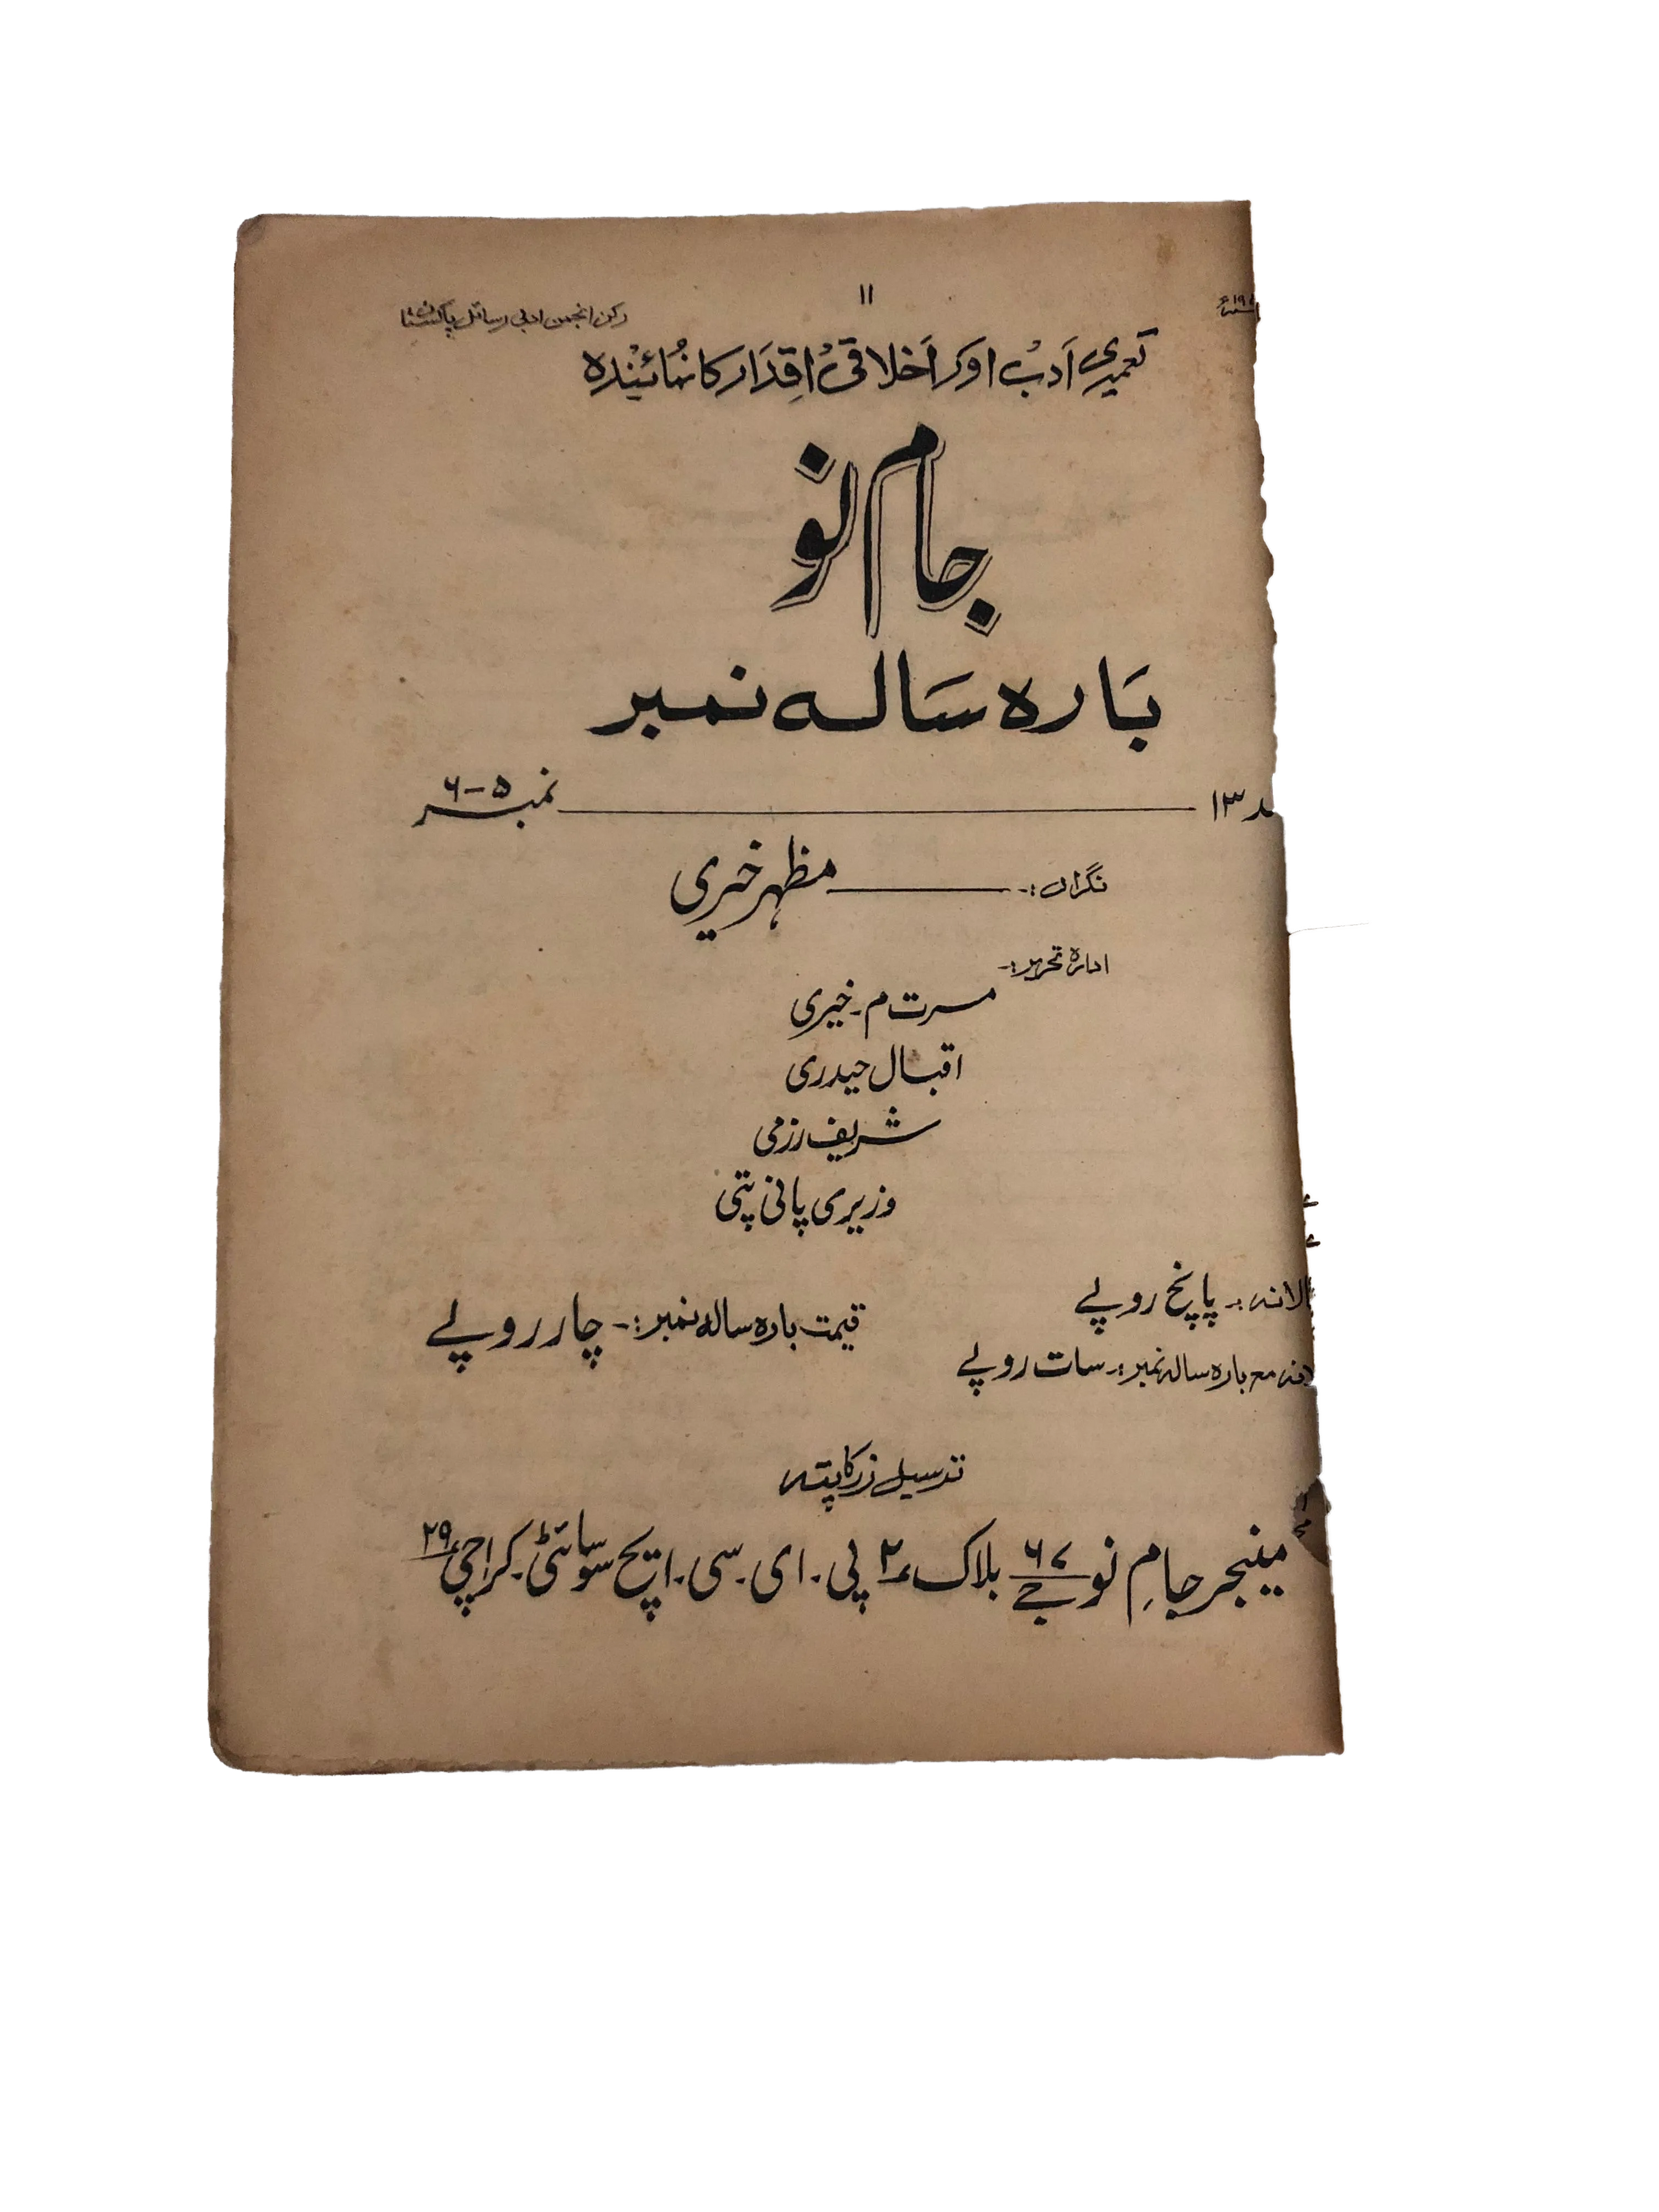 ۱۱
رکن انجمن ادبی رسائل پاکستان
تعمیری اَدبْ اوَر اَخلاقیْ اقِدَار کا نمُائیْندہ
جام نو
بَارہ سَالہ نمبر
۱۳
نمبر ۵-۶
نگراں :- مظہر خیری
ادارہ تحریر :-
مسرت م۔ خیری
اقبال حیدری
شریف رزمی
وزیری پانی پتی
الانہ :- پانچ روپے
قیمت بارہ سالہ نمبر :- چار روپے
مع بارہ سالہ نمبر :- سات روپے
ترسیل زر کا پتہ
مینیجر جامِ نو ۶۷/جے بلاک ۲ پی۔ ای۔ سی۔ ایچ سوسائٹی۔ کراچی ۲۹